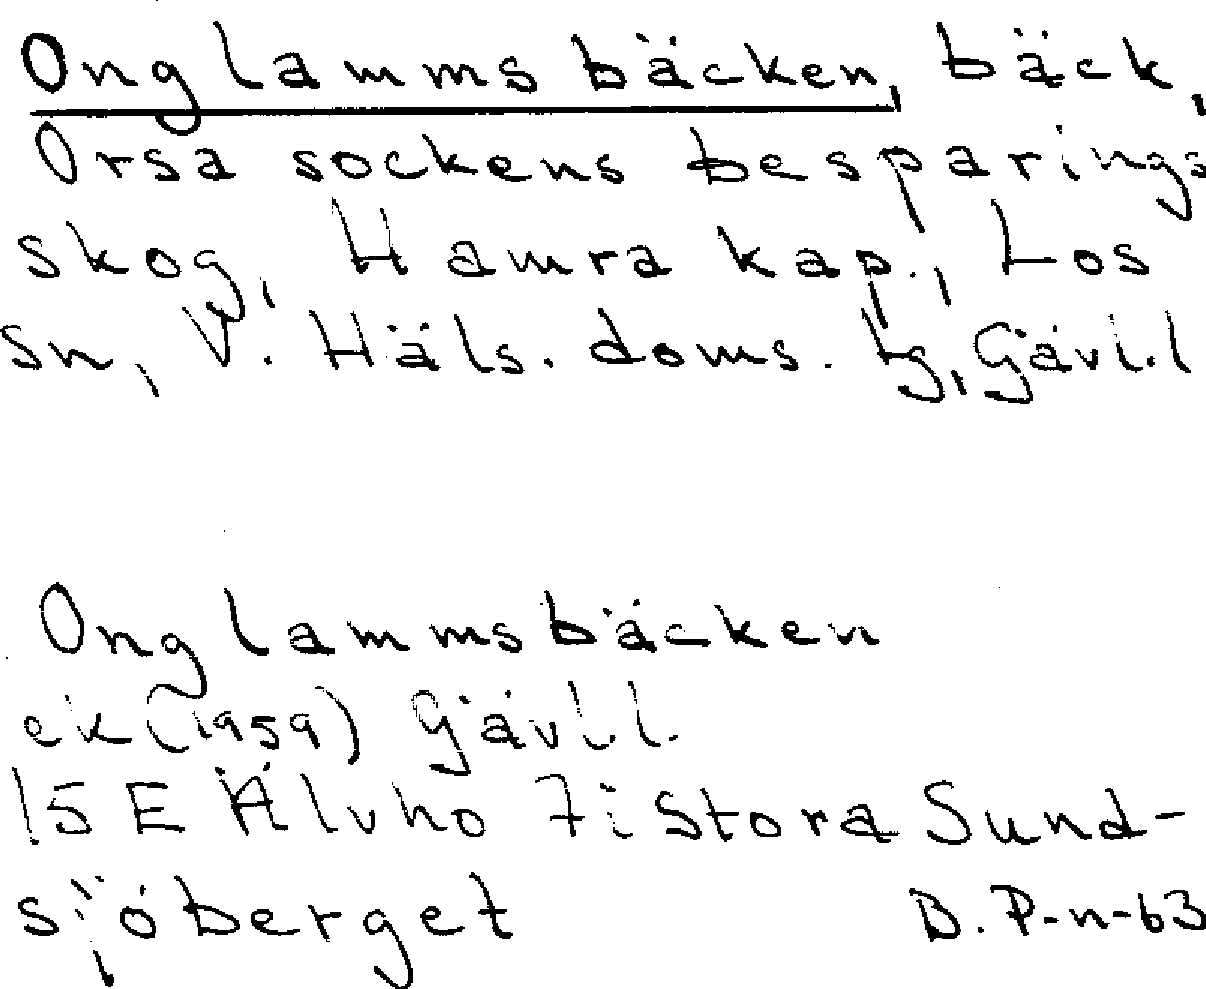 Onglammsbäcken, bäck,
Orsa sockens besparings
skog, Hamra kap., Los
sn, V. Häls. doms. tg, Gävl.l
Onglammsbäcken
ek (1959) Gävl.l.
15 E Älvho 7i Stora Sund-
sjöberget B. P-n-63